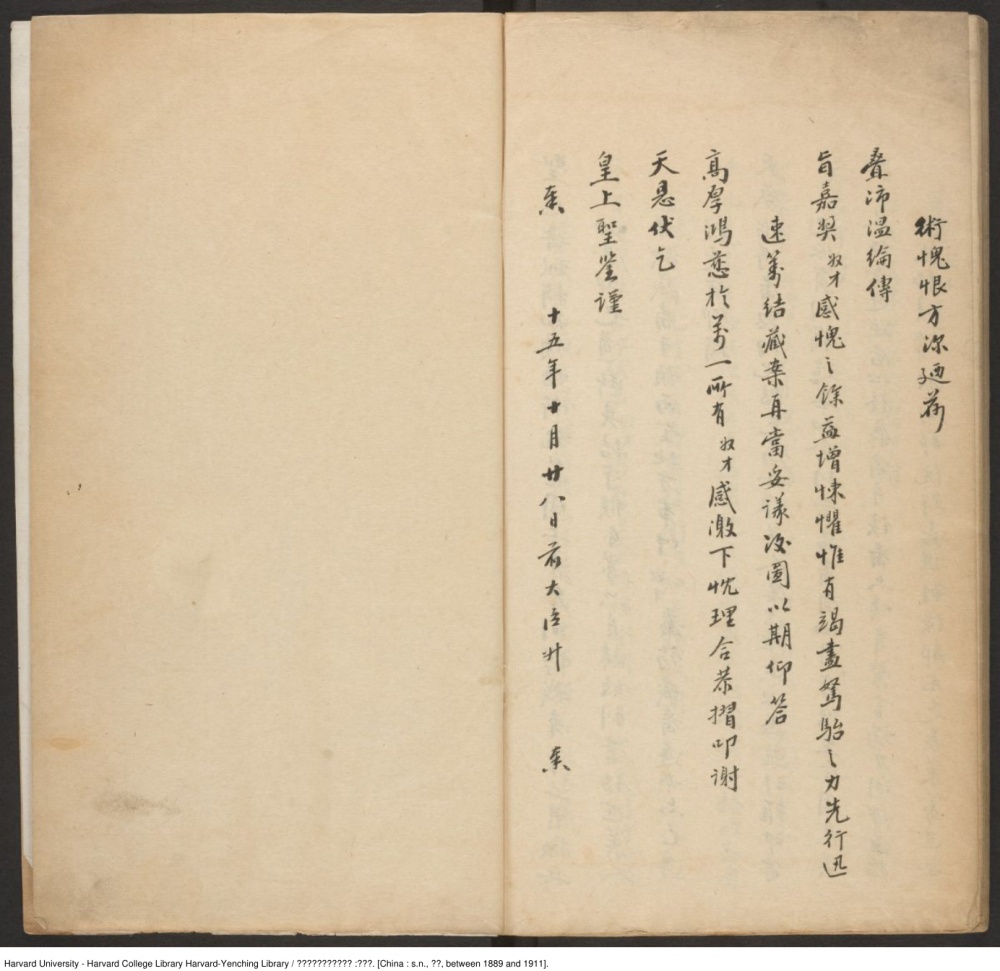 術愧恨方深廼荷
疊沛溫綸傳
旨嘉奨奴才感愧之餘益增悚懼惟有竭盡駑駘之力先行迅
速籌結藏案再當妥議後圖以期仰答
高厚鴻慈於萬一所有奴才感激下忱理合恭摺叩謝
天恩伏乞
皇上聖鑒謹
奏 十五年十月廿八日前大臣升 奏
Harvard University - Harvard College Library Harvard-Yenching Library / ??????????? :???. [China : s.n., ??, between 1889 and 1911].